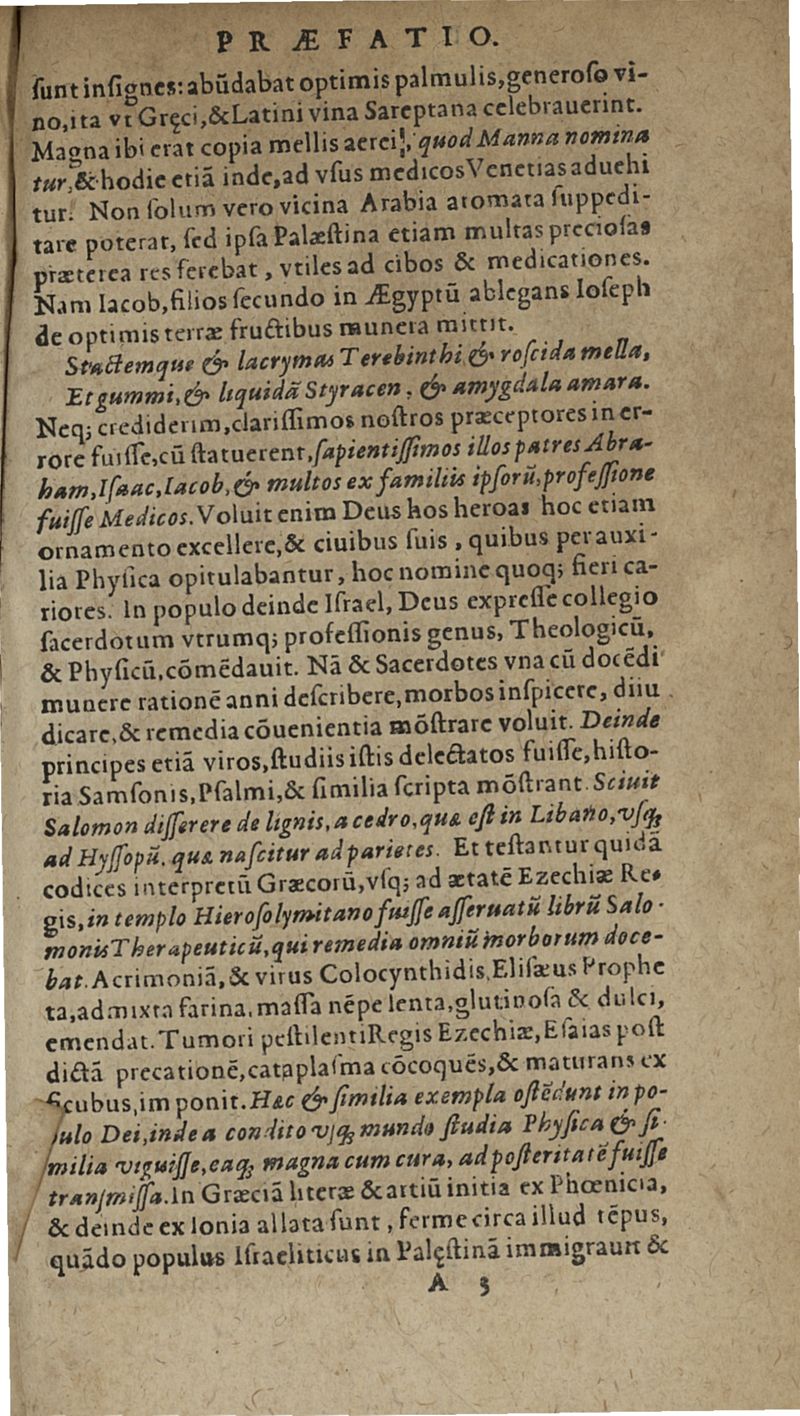 PRÆFATIO.
ſunt inſignes: abũdabat optimis palmulis, generoſo vi-
no, ita vt Gręci, & Latini vina Sareptana celebrauerint.
Magna ibi erat copia mellis aerei, quod Manna nomina
tur, & hodie etiã inde, ad vſus medicos Venetias aduehi
tur. Non ſolum vero vicina Arabia aromata ſuppedi-
tare poterat, ſed ipſa Palæſtina etiam multas precioſas
præterea res ferebat, vtiles ad cibos & medicationes.
Nam Iacob, filios ſecundo in Ægyptũ ablegans Ioſeph
de optimis terræ fructibus munera mittit.
Stactemque & lacrymas Terebinthi & roſcida mella,
Et gummi, & liquidã Styracen, & amygdala amara.
Neq; crediderim, clariſſimos noſtros præceptores in er-
rore fuiſſe, cũ ſtatuerent, ſapientiſſimos illos patres Abra-
ham, Iſaac, Iacob, & multos ex familiis ipſorũ, profeſſione
fuiſſe Medicos. Voluit enim Deus hos heroas hoc etiam
ornamento excellere, & ciuibus ſuis, quibus per auxi-
lia Phyſica opitulabantur, hoc nomine quoq; fieri ca-
riores. In populo deinde Iſrael, Deus expreſſe collegio
ſacerdotum vtrumq; profeſſionis genus, Theologicũ,
& Phyſicũ, cõmẽdauit. Nã & Sacerdotes vna cũ docẽdi
munere rationẽ anni deſcribere, morbos inſpicere, diiu
dicare, & remedia cõuenientia mõſtrare voluit. Deinde
principes etiã viros, ſtudiis iſtis delectatos fuiſſe, hiſto-
ria Samſonis, Pſalmi, & ſimilia ſcripta mõſtrant. Sciuit
Salomon diſſerere de lignis, a cedro, quæ eſt in Libano, vſq;
ad Hyſſopũ, quæ naſcitur ad parietes. Et teſtantur quidã
codices interpretũ Græcorũ, vſq; ad ætatẽ Ezechiæ Re-
gis, in templo Hieroſolymitano fuiſſe aſſeruatũ librũ Salo-
monis Therapeuticũ, qui remedia omniũ morborum doce-
bat. Acrimoniã, & virus Colocynthidis, Eliſæus Prophe
ta, admixta farina, maſſa nẽpe lenta, glutinoſa & dulci,
emendat. Tumori peſtilenti Regis Ezechiæ, Eſaias poſt
dictã precationẽ, cataplaſma cõcoquẽs, & maturans ex
ficubus, imponit. Hæc & ſimilia exempla oſtẽdunt in po-
pulo Dei, inde a condito vſq; mundo ſtudia Phyſica & ſi-
milia viguiſſe, eaq; magna cum cura, ad poſteritatẽ fuiſſe
tranſmiſſa. In Græciã literæ & artiũ initia ex Phœnicia,
& deinde ex Ionia allata ſunt, ferme circa illud tẽpus,
quãdo populus Iſraeliticus in Palęſtinã immigrauit &
A 3